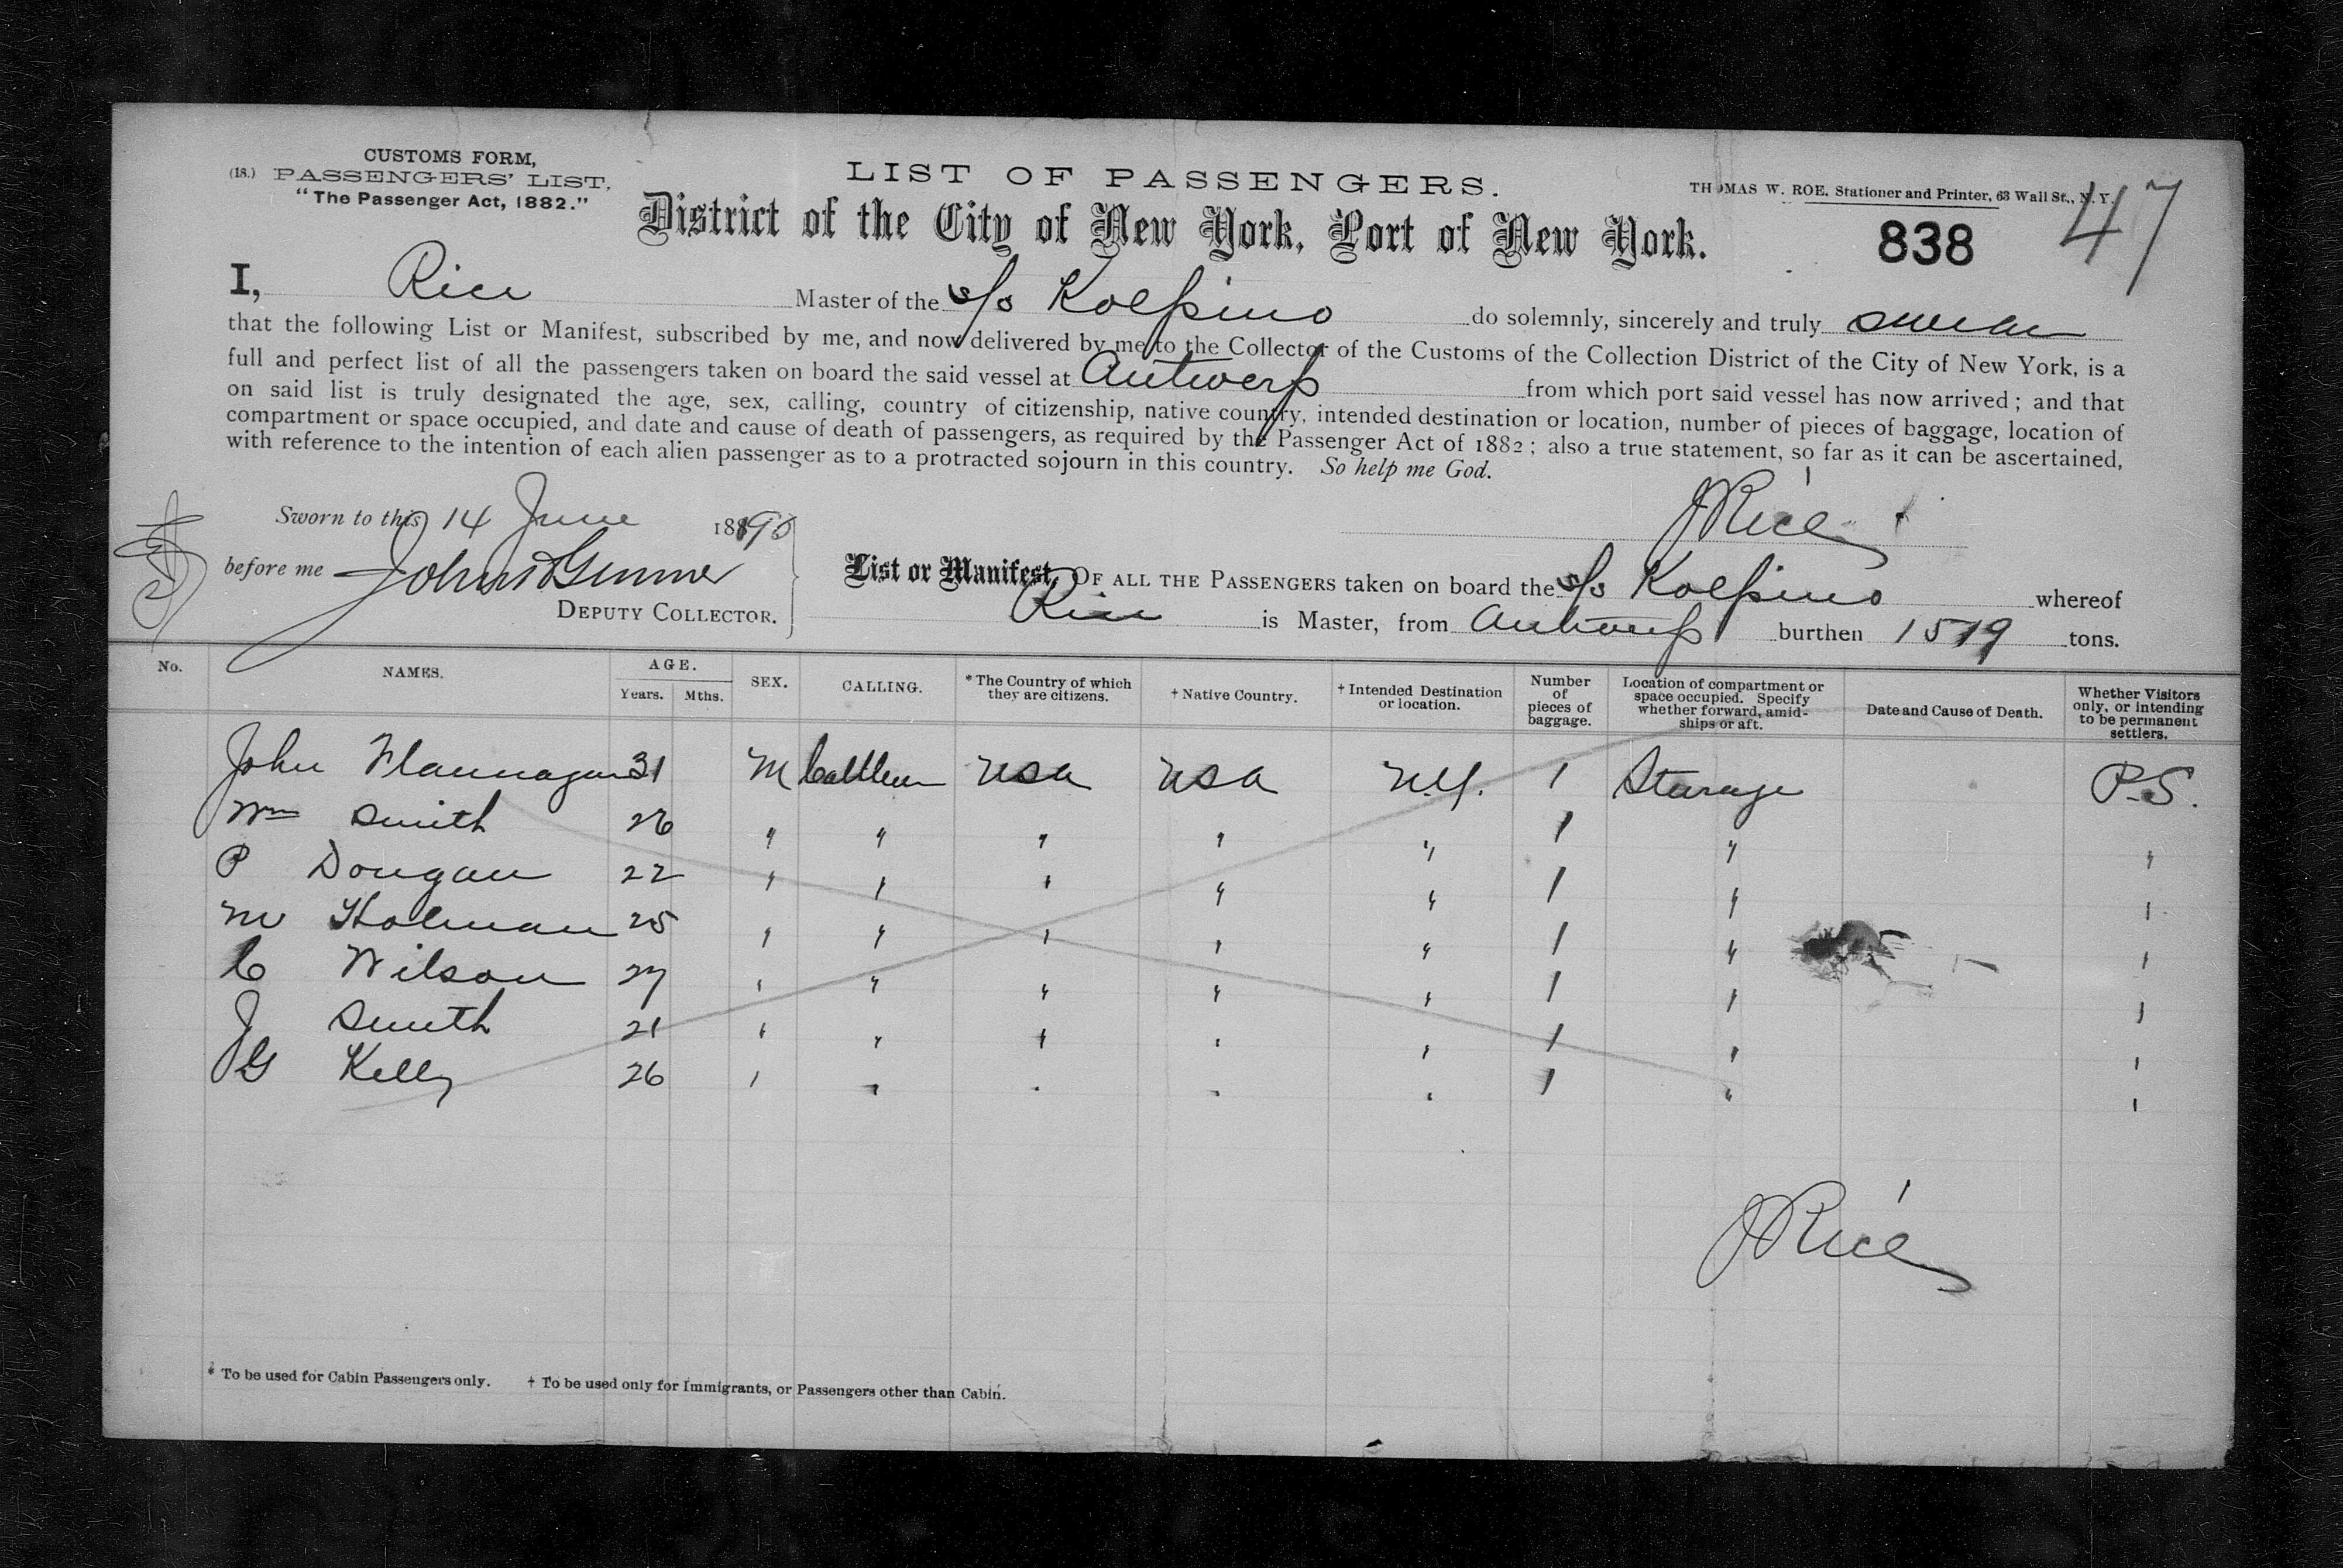 CUSTOMS FORM,
(18.) PASSENGERS' LIST.
"The Passenger Act, 1882."
LIST OF PASSENGERS.
THOMAS W. ROE, Stationer and Printer, 63 Wall St., N.Y.
47
District of the City of New York, Port of New York.
838
I, Rice Master of the s/s Kolpino do solemnly, sincerely and truly swear
that the following List or Manifest, subscribed by me, and now delivered by me to the Collector of the Customs of the Collection District of the City of New York, is a
full and perfect list of all the passengers taken on board the said vessel at Antwerp from which port said vessel has now arrived; and that
on said list is truly designated the age, sex, calling, country of citizenship, native country, intended destination or location, number of pieces of baggage, location of
compartment or space occupied, and date and cause of death of passengers, as required by the Passenger Act of 1882; also a true statement, so far as it can be ascertained,
with reference to the intention of each alien passenger as to a protracted sojourn in this country. So help me God.
Sworn to this 14 June 1890
J Rice
before me
DEPUTY COLLECTOR.
List or Manifest, OF ALL THE PASSENGERS taken on board the s/s Kolpino whereof
Rice is Master, from Antwerp burthen 1519 tons.
No. NAMES. AGE. Years. Mths. SEX. CALLING. * The Country of which they are citizens. † Native Country. † Intended Destination or location. Number of pieces of baggage. Location of compartment or space occupied. Specify whether forward, amidships or aft. Date and Cause of Death. Whether Visitors only, or intending to be permanent settlers.
John Flannagan 31 M Cattleman USA USA N.Y. 1 Sterage P.S.
Wm Smith 26 " " " " " 1 " "
P Dougan 22 " " " " " 1 " "
M Holman 25 " " " " " 1 " "
C Wilson 27 " " " " " 1 " "
J Smith 21 " " " " " 1 " "
JG Kelly 26 " " " " " 1 " "
J Rice
* To be used for Cabin Passengers only. † To be used only for Immigrants, or Passengers other than Cabin.